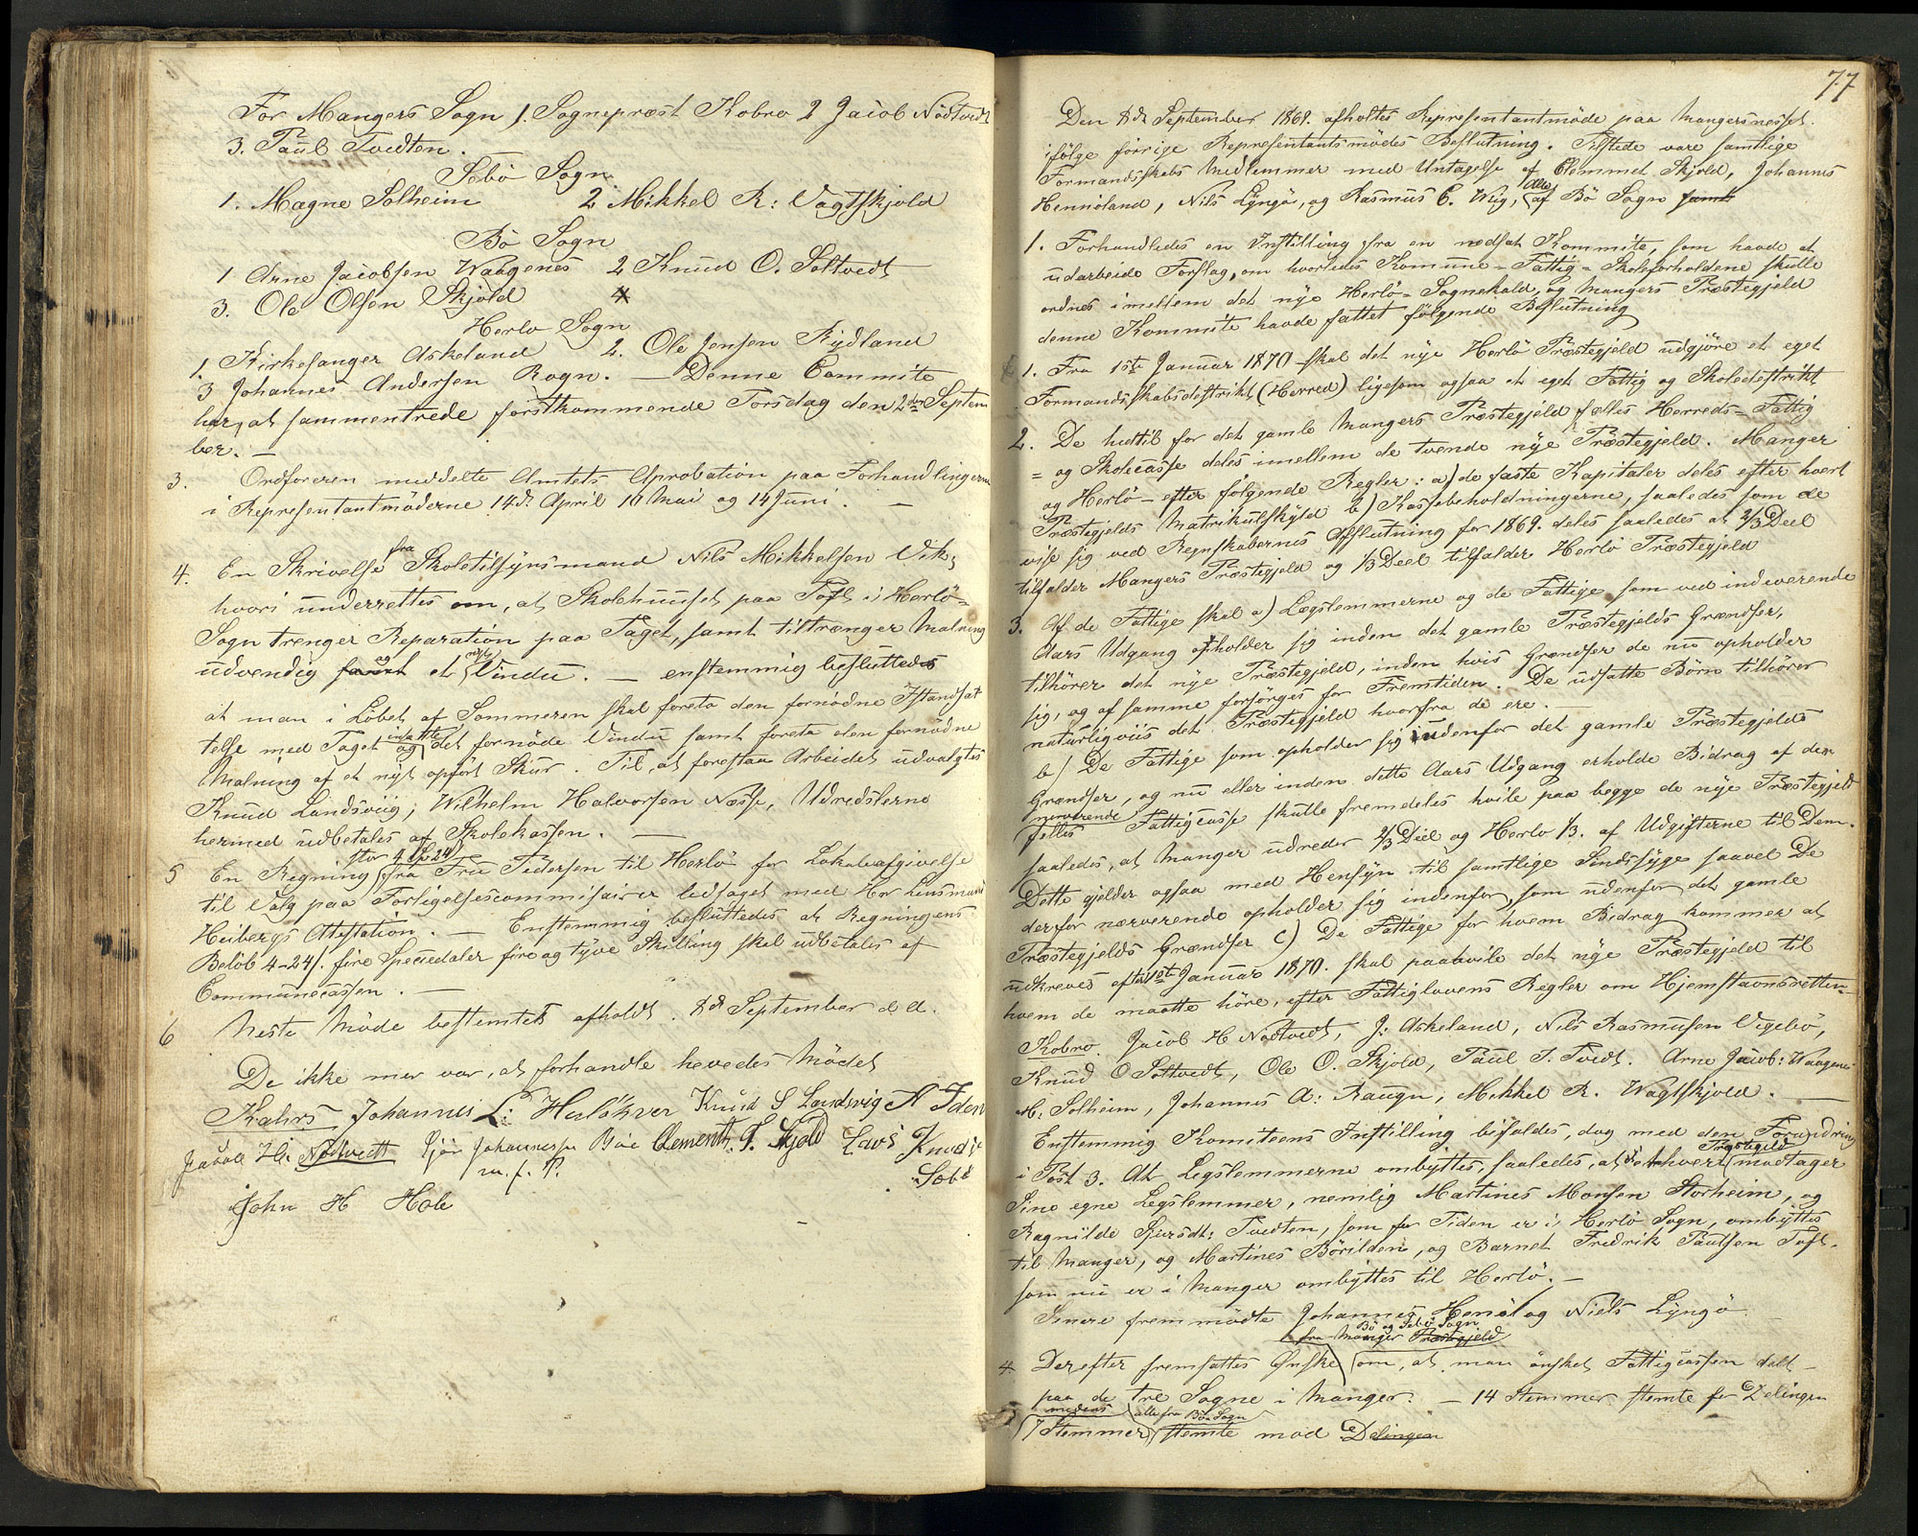 For Mangers Sogn 1. Sogneprest Kobro 2 Jacob Nödtvedt
3. Paul Tvedten.
Sæbö Sogn
1. Magne Solheim 2 Mikkel R: Vagtskjold
Bö Sogn
1 Arne Jacobsen Waagenes 2 Knud O. Soltvedt
3. Ole Olsen Skjold 4
Herlo Sogn
1. Kirkesanger Askeland 2. Ole Jensen Rydland
3 Johannes Andersen Rogn. — Denne Committe
har, at sammentrede förstkommende Torsdag den 2den Septem
ber. —
3. Ordföreren meddelte Amtets Aprobation paa Forhandlingerne
i Representantmöderne 14de April 10 Mai og 14 Juni. —
4. En Skrivelse fra Skoletilsynsmand Nils Mikkelsen Vik,
hvori underrettes om, at Skolehuuset paa Toft i Herlö-
Sogn trenger Reparation paa Taget, samt tiltrænger Malning
udvendig samt og et nyt Vindu. — enstemmig besluttedes
at man i Löbet af Sommeren skal foreta den fornödne Istandsæt
telse med Taget og insatte det fornöde Vindu samt foreta den fornödne
Malning af et nyt opfört Skur. Til, at forestaa Arbeidet udvalgtes
Knud Landsviig, Wilhelm Halvorsen Nesse, Udredslerne
hermed udbetales af Skolekassen. —
5 En Regning stor 4 24 fra Fru Pedersen til Herlö for Lokaleafgivelse
til Valg paa Forligelsescommisairer ledsaget med Hr Lensmand
Heibergs Attestation. — Enstemmig besluttedes at Regningens
Belöb 4-24 /. fire Speciedaler fire og tyve Skilling skal udbetales af
Communecassen. —
6 Neste Möde bestemtes afholdt 8d September d. A.
Da ikke mer var, at forhandle hevedes Mödet
Johannes L: Knud S Landsvig
Jacob H. Nødtvedt Johannesen Böe Clement T. Skjold Lars Knuds:
m. f. P. Sæbö
John H Hole
77
Den 8de September 1869. afholtes Representantmöde paa Mangersnesset.
ifölge forrige Representantsmödes Beslutning. Tilstede vare samtlige
Formandsskabs Medlemmer med Untagelse af Clemmet Skjold, Johannes
Hennöland, Nils Lyngö, og Rasmus C. Wiig, alle af Bö Sogn samt
1. Forhandledes en Instilling fra en nedsat Kommite, som havde at
udarbeide Forslag, om hvorledes Komune- Fattig- Skoleforholdene skulle
ordnes imellem det nye Herlö- Sognekald, og Mangers Præstegjeld
denne Kommite havde fattet fölgende Beslutning
1. Fra 1ste Januar 1870 skal det nye Herlö Præstegjeld udgjöre et eget
Formandsskabsdestrikt (Herred) ligesom ogsaa et eget Fattig og Skoledestrikt
2. De hidtil for det gamle Mangers Præstegjeld fælles Herreds- Fattig
- og Skolecasse deles imellem de tvende nye Præstegjeld. Manger
og Herlö- efter fölgende Regler: a) de faste Kapitaler deles efter hvert
Præstegjelds Matrikulskyld b) Kassebeholdningerne, saaledes som de
vise sig ved Regnskabernes Afslutning for 1869. deles saaledes at 2/3 Deel
tilfalder Mangers Præstegjeld og 1/3 Deel tilfalder Herlö Præstegjeld
3. Af de Fattige skal a) Lægslemmerne og de Fattige som ved indeværende
Aars Udgang opholder sig inden det gamle Præstegjelds Grændser,
tilhörer det nye Præstegjeld, inden hvis Grændser de nu opholder
sig, og af samme forsörges for Fremtiden. De udsatte Börn tilhörer
naturligviis det Præstegjeld hvorfra de ere. —
b) De Fattige som opholder sig udenfor det gamle Præstegjelds
Grændser, og nu eller inden dette Aars Udgang erholde Bidrag af den
nuværende fælles Fattigcasse skulle fremdeles hvile paa begge de nye Præstegjeld
saaledes, at Manger udreder 2/3 Deel og Herlo 1/3. af Udgifterne til Dem.
Dette gjelder ogsaa med Hensyn til samtlige Sindssyge saavel De
der for nærverende opholder sig indenfor, som udenfor det gamle
Præstegjelds Grændser c) De Fattige for hvem Bidrag kommer at
udkreves efter 1ste Januar 1870. skal paahvile det nye Præstegjeld til
hvem de maatte höre, efter Fattiglovens Regler om Hjemstavnsretten.—
Kobro. Jacob H Nødtvedt, J. Askeland, Nils Rasmusen Vigebö,
Knud O Soltvedt, Ole O. Skjold, Paul J. Tvedt. Arne Jacob: Waagenes
M: Solheim, Johannes A: Raugn, Mikkel R. Wagtskjold. —
Enstemmig Komiteens Instilling bifaldes, dog med den Forandring
i Post 3. At Legslemmerne ombyttes, saaledes, at hvert Præstegjeld modtager
Sine egne Legslemmer, nemlig Martines Monsen Storheim, og
Ragnilde Tvedten, som for Tiden er i Herlö Sogn, ombyttes
til Manger, og Martines Börilden, og Barnet Fredrik Paulsen Toft.
som nu er i Manger ombyttes til Herlö. —
Senere fremmödte Johannes Henöl og Niels Lyngö
fra Manger Præstegjeld Bö og Sebö Sogn
4. Derefter fremsattes Önske om, at man önsket Fattigcassen delt —
paa de tre Sogne i Manger. — 14 Stemmer stemte for Delingen
medens 7 Stemmer alle fra Bö Sogn stemte mod Delingen